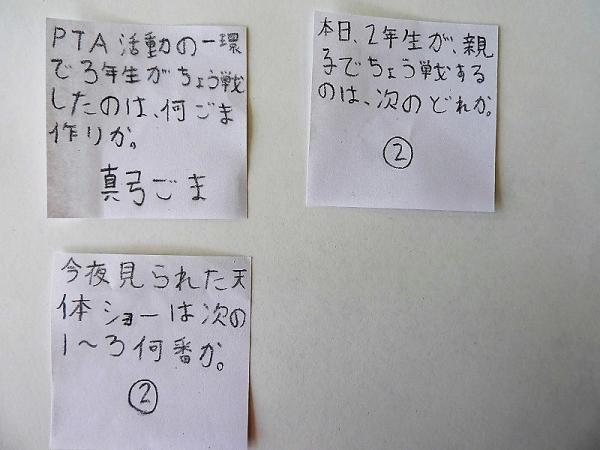 PTA活動の一環
で3年生がちょう戦
したのは、何ごま
作りか。
真弓ごま
本日、2年生が、親
子でちょう戦する
のは、次のどれか。
②
今夜見られた天
体ショーは次の
1〜3何番か。
②